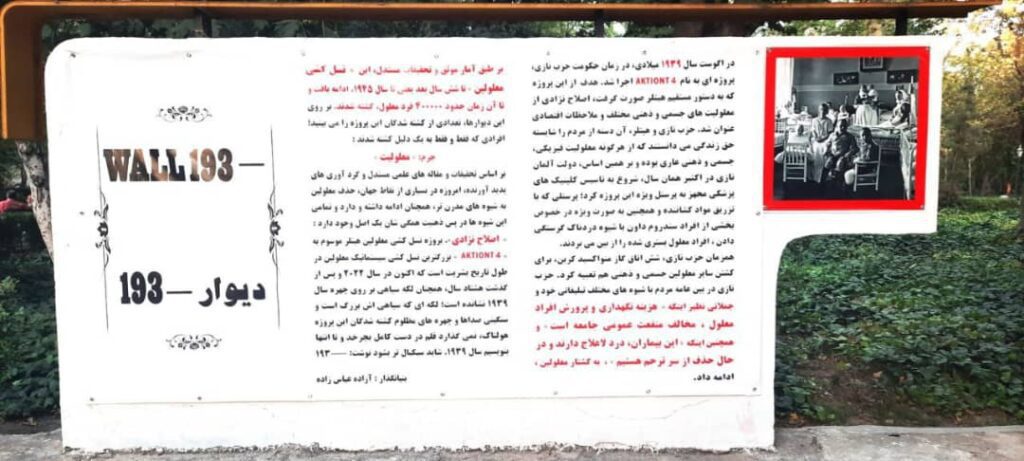 در اکوست سال ۱۹۳۹ میلادی، در زمان حکومت حزب نازی،
پروژه ای به نام AKTIONT 4 اجرا شد. هدف از این پروژه
که به دستور مستقیم هیتلر صورت گرفت، اصلاح نژادی از
معلولیت های جسمی و ذهنی مختلف و ملاحظات اقتصادی
عنوان شد. حزب نازی و هیتلر، آن دسته از مردم را شایسته
حق زندگی می دانستند که از هرگونه معلولیت فیزیکی،
جسمی و ذهنی عاری بوده و بر همین اساس، دولت آلمان
نازی در اکتبر همان سال، شروع به تاسیس کلینیک های
پزشکی مجهز به پرسنل ویژه این پروژه کرد؛ پرسنلی که با
تزریق مواد کشنده و همچنین به صورت ویژه در خصوص
بخشی از افراد سندروم داون با شیوه دردناک گرسنگی
دادن ، افراد معلول بستری شده را از بین می بردند.
همزمان حزب نازی، شش اتاق گاز منواکسید کربن، برای
کشتن سایر معلولین جسمی و ذهنی هم تعبیه کرد. حزب
نازی در بین عامه مردم با شیوه های مختلف تبلیغاتی خود و
جملاتی نظیر اینکه « هزینه نگهداری و پرورش افراد
معلول ، مخالف منفعت عمومی جامعه است » و
همچنین اینکه « این بیماران، درد لاعلاج دارند و در
حال حذف از سر ترحم هستیم » ، به کشتار معلولین ،
ادامه داد.
بر طبق آمار موثق و تحقیقات مستدل، این « نسل کشی
معلولین » تا شش سال بعد یعنی تا سال ۱۹۴۵، ادامه یافت و
تا آن زمان حدود ۴۰۰۰۰۰ فرد معلول، کشته شدند. بر روی
این دیوارها، تعدادی از کشته شدگان این پروژه را می بینید!
افرادی که فقط و فقط به یک دلیل کشته شدند :
جرم: « معلولیت »
بر اساس تحقیقات و مقاله های علمی مستدل و گرد آوری های
پدید آورنده، امروزه در بسیاری از نقاط جهان، حذف معلولین
به شیوه های مدرن تر، همچنان ادامه داشته و دارد و تمامی
این شیوه ها در پس ذهنیت همگی شان یک اصل وجود دارد :
« اصلاح نژادی ». پروژه نسل کشی معلولین هیتلر موسوم به
« AKTIONT 4 » بزرگترین نسل کشی سیستماتیک معلولین در
طول تاریخ بشریت است که اکنون در سال ۲۰۲۲ و پس از
گذشت هشتاد سال، همچنان لکه سیاهی بر روی چهره سال
۱۹۳۹ نشانده است؛ لکه ای که سیاهی اش بزرگ است و
سنگینی صداها و چهره های مظلوم کشته شدگان این پروژه
هولناک، نمی گذارد قلم در دست کامل بچرخد و تا انتها
بنویسیم سال ۱۹۳۹. شاید سمبکال تر بشود نوشت: —۱۹۳
بنیانگذار : آزاده عباس زاده
WALL 193 —
دیوار — 193